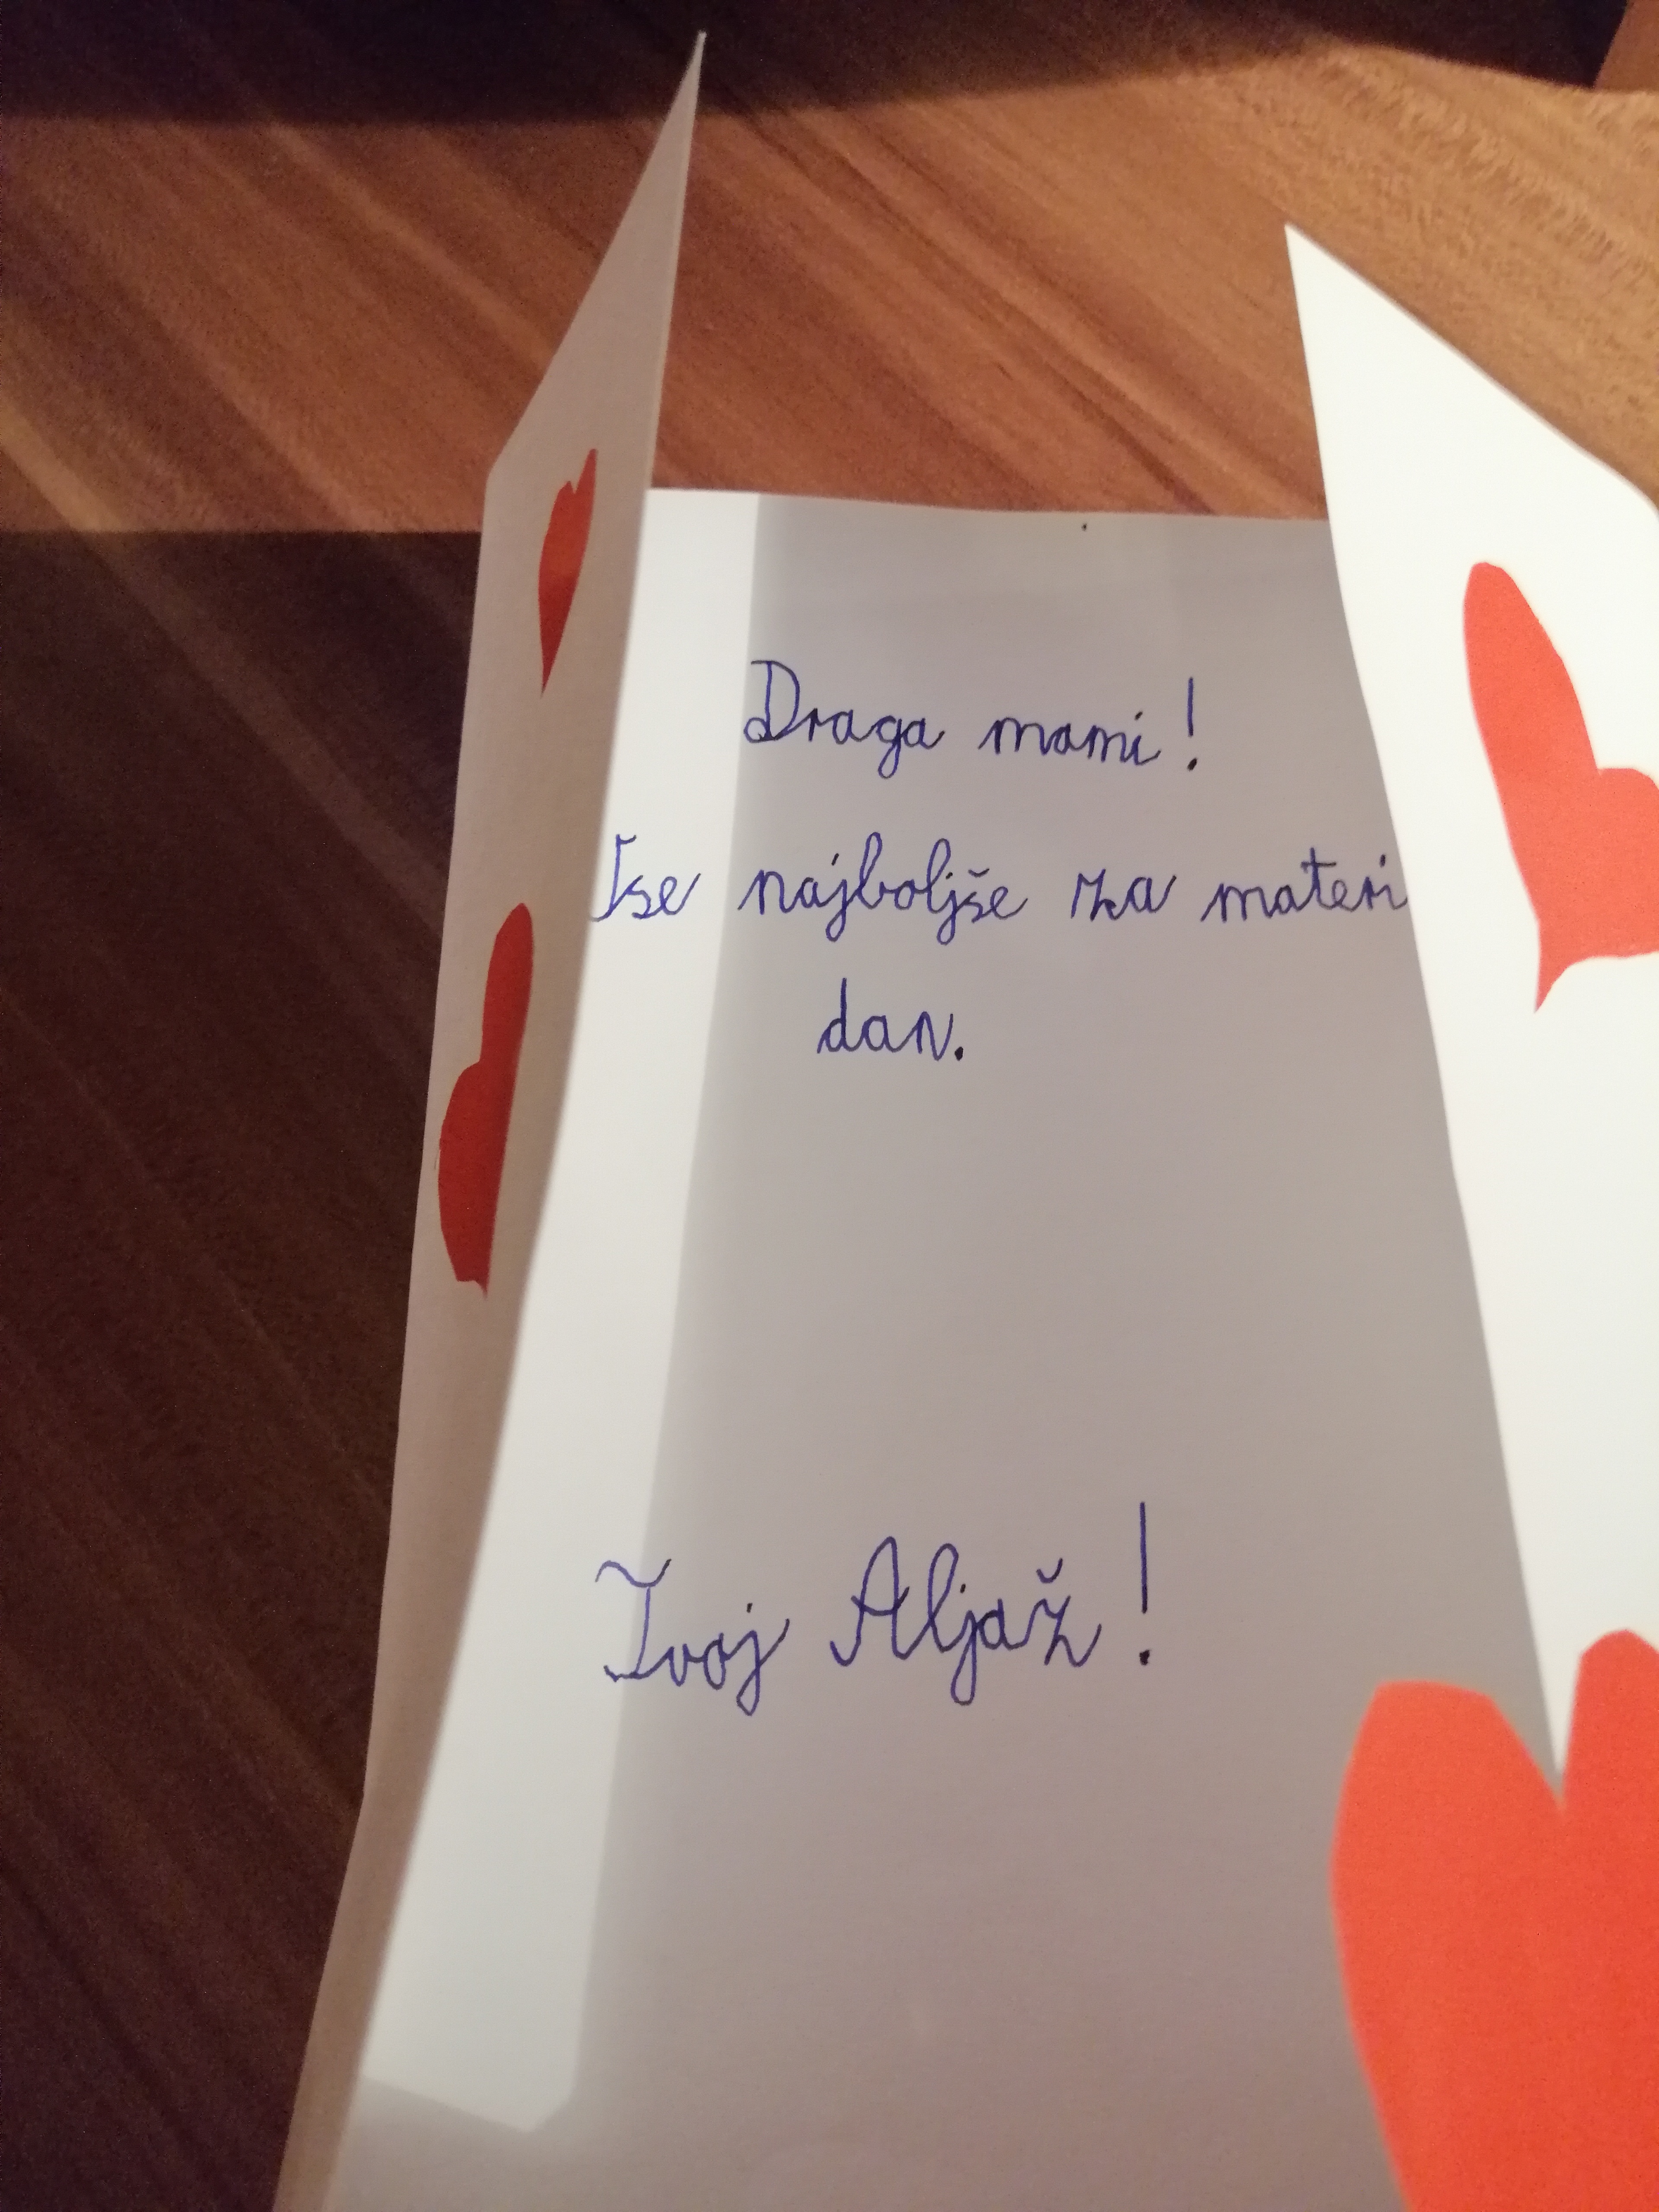 Draga mami!
Vse najboljše za materi
dan.
Tvoj Aljaž!